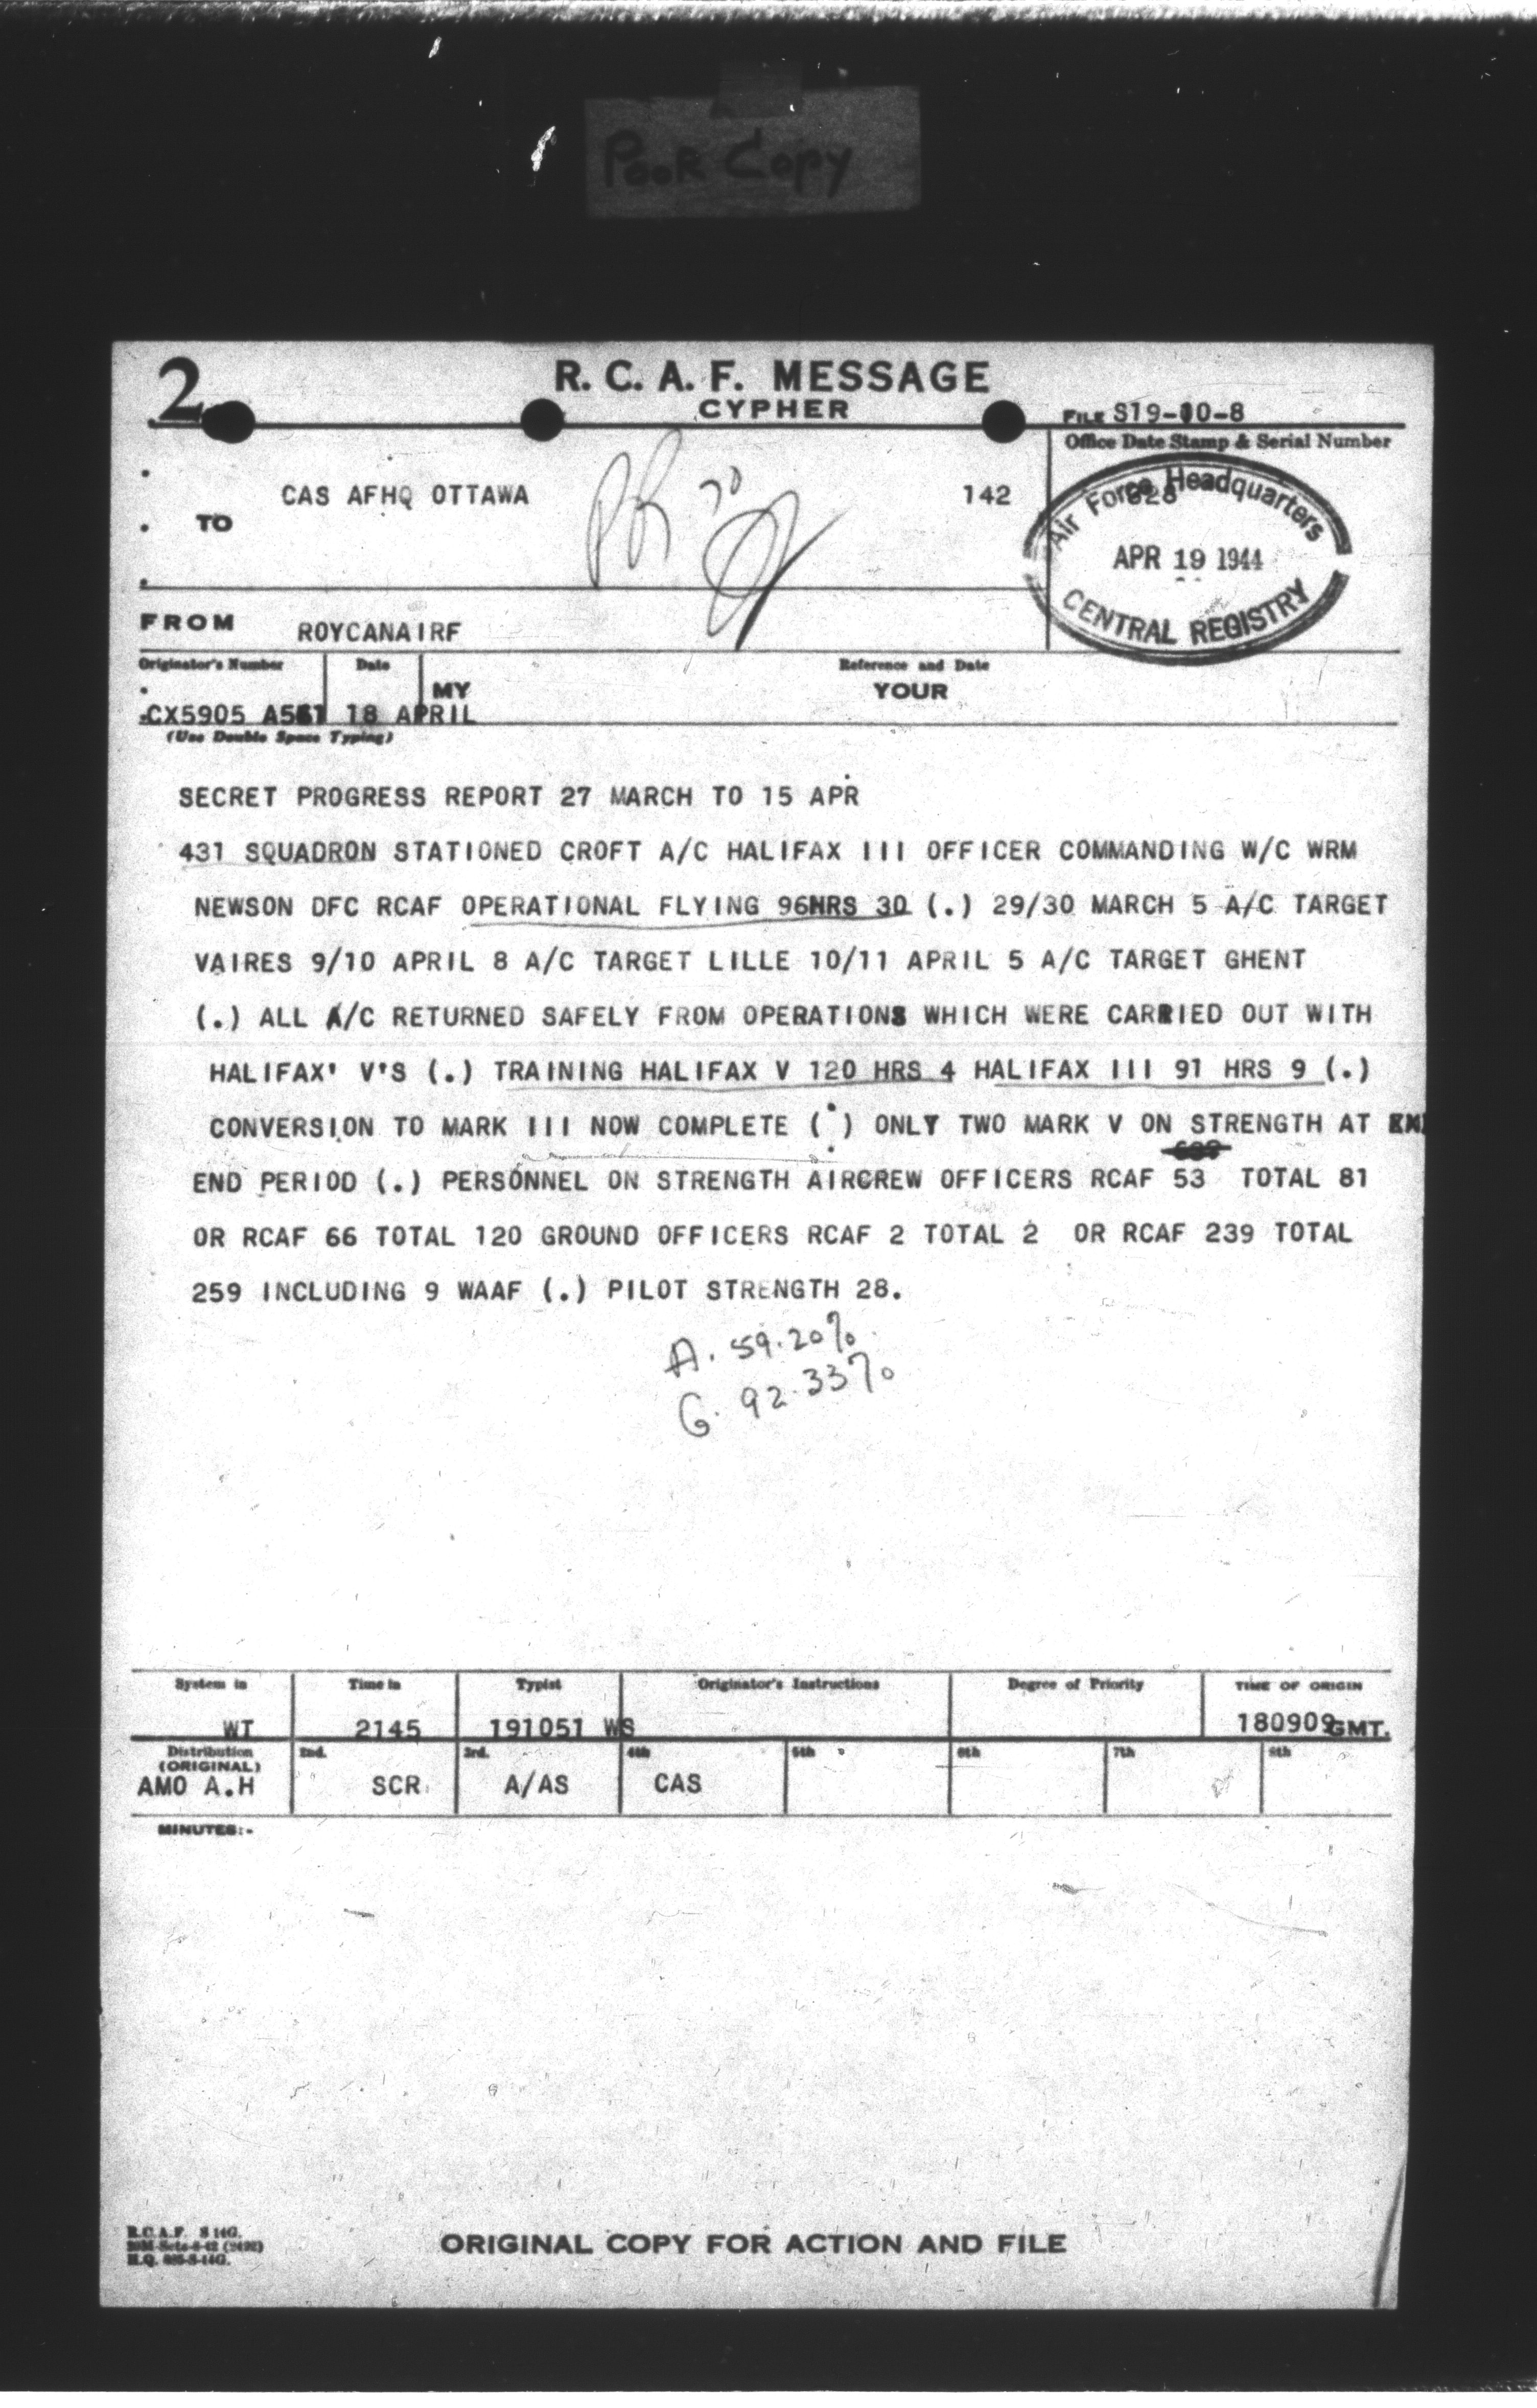 Poor Copy
2
R. C. A. F. MESSAGE
CYPHER
FILE S19-10-8
Office Date Stamp & Serial Number
CAS AFHQ OTTAWA
142
TO
Air Force Headquarters
APR 19 1944
CENTRAL REGISTRY
FROM ROYCANAIRF
Originator's Number Date Reference and Date
MY YOUR
CX5905 18 APRIL
(Use Double Space Typing)
SECRET PROGRESS REPORT 27 MARCH TO 15 APR
431 SQUADRON STATIONED CROFT A/C HALIFAX III OFFICER COMMANDING W/C WRM
NEWSON DFC RCAF OPERATIONAL FLYING 96HRS 30 (.) 29/30 MARCH 5 A/C TARGET
VAIRES 9/10 APRIL 8 A/C TARGET LILLE 10/11 APRIL 5 A/C TARGET GHENT
(.) ALL A/C RETURNED SAFELY FROM OPERATIONS WHICH WERE CARRIED OUT WITH
HALIFAX' V'S (.) TRAINING HALIFAX V 120 HRS 4 HALIFAX III 91 HRS 9 (.)
CONVERSION TO MARK III NOW COMPLETE (.) ONLY TWO MARK V ON STRENGTH AT
END PERIOD (.) PERSONNEL ON STRENGTH AIRCREW OFFICERS RCAF 53 TOTAL 81
OR RCAF 66 TOTAL 120 GROUND OFFICERS RCAF 2 TOTAL 2 OR RCAF 239 TOTAL
259 INCLUDING 9 WAAF (.) PILOT STRENGTH 28.
A. 59.20%
G. 92.33%
System in Time in Typist Originator's Instructions Degree of Priority TIME OF ORIGIN
WT 2145 191051 WS 180909 GMT.
Distribution 2nd. 3rd. 4th 5th 6th 7th 8th
(ORIGINAL)
AMO A.H SCR A/AS CAS
MINUTES:-
R.C.A.F. S 14G.
ORIGINAL COPY FOR ACTION AND FILE